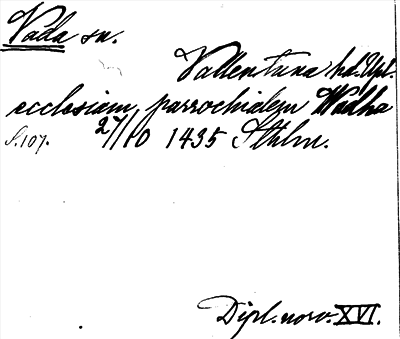 Vada sn.
Vallentuna hd. Upl.
ecclesiam parrochialem Wadha
S. 107. 27/10 1435 Sthlm.
Dipl. norv. XVI.